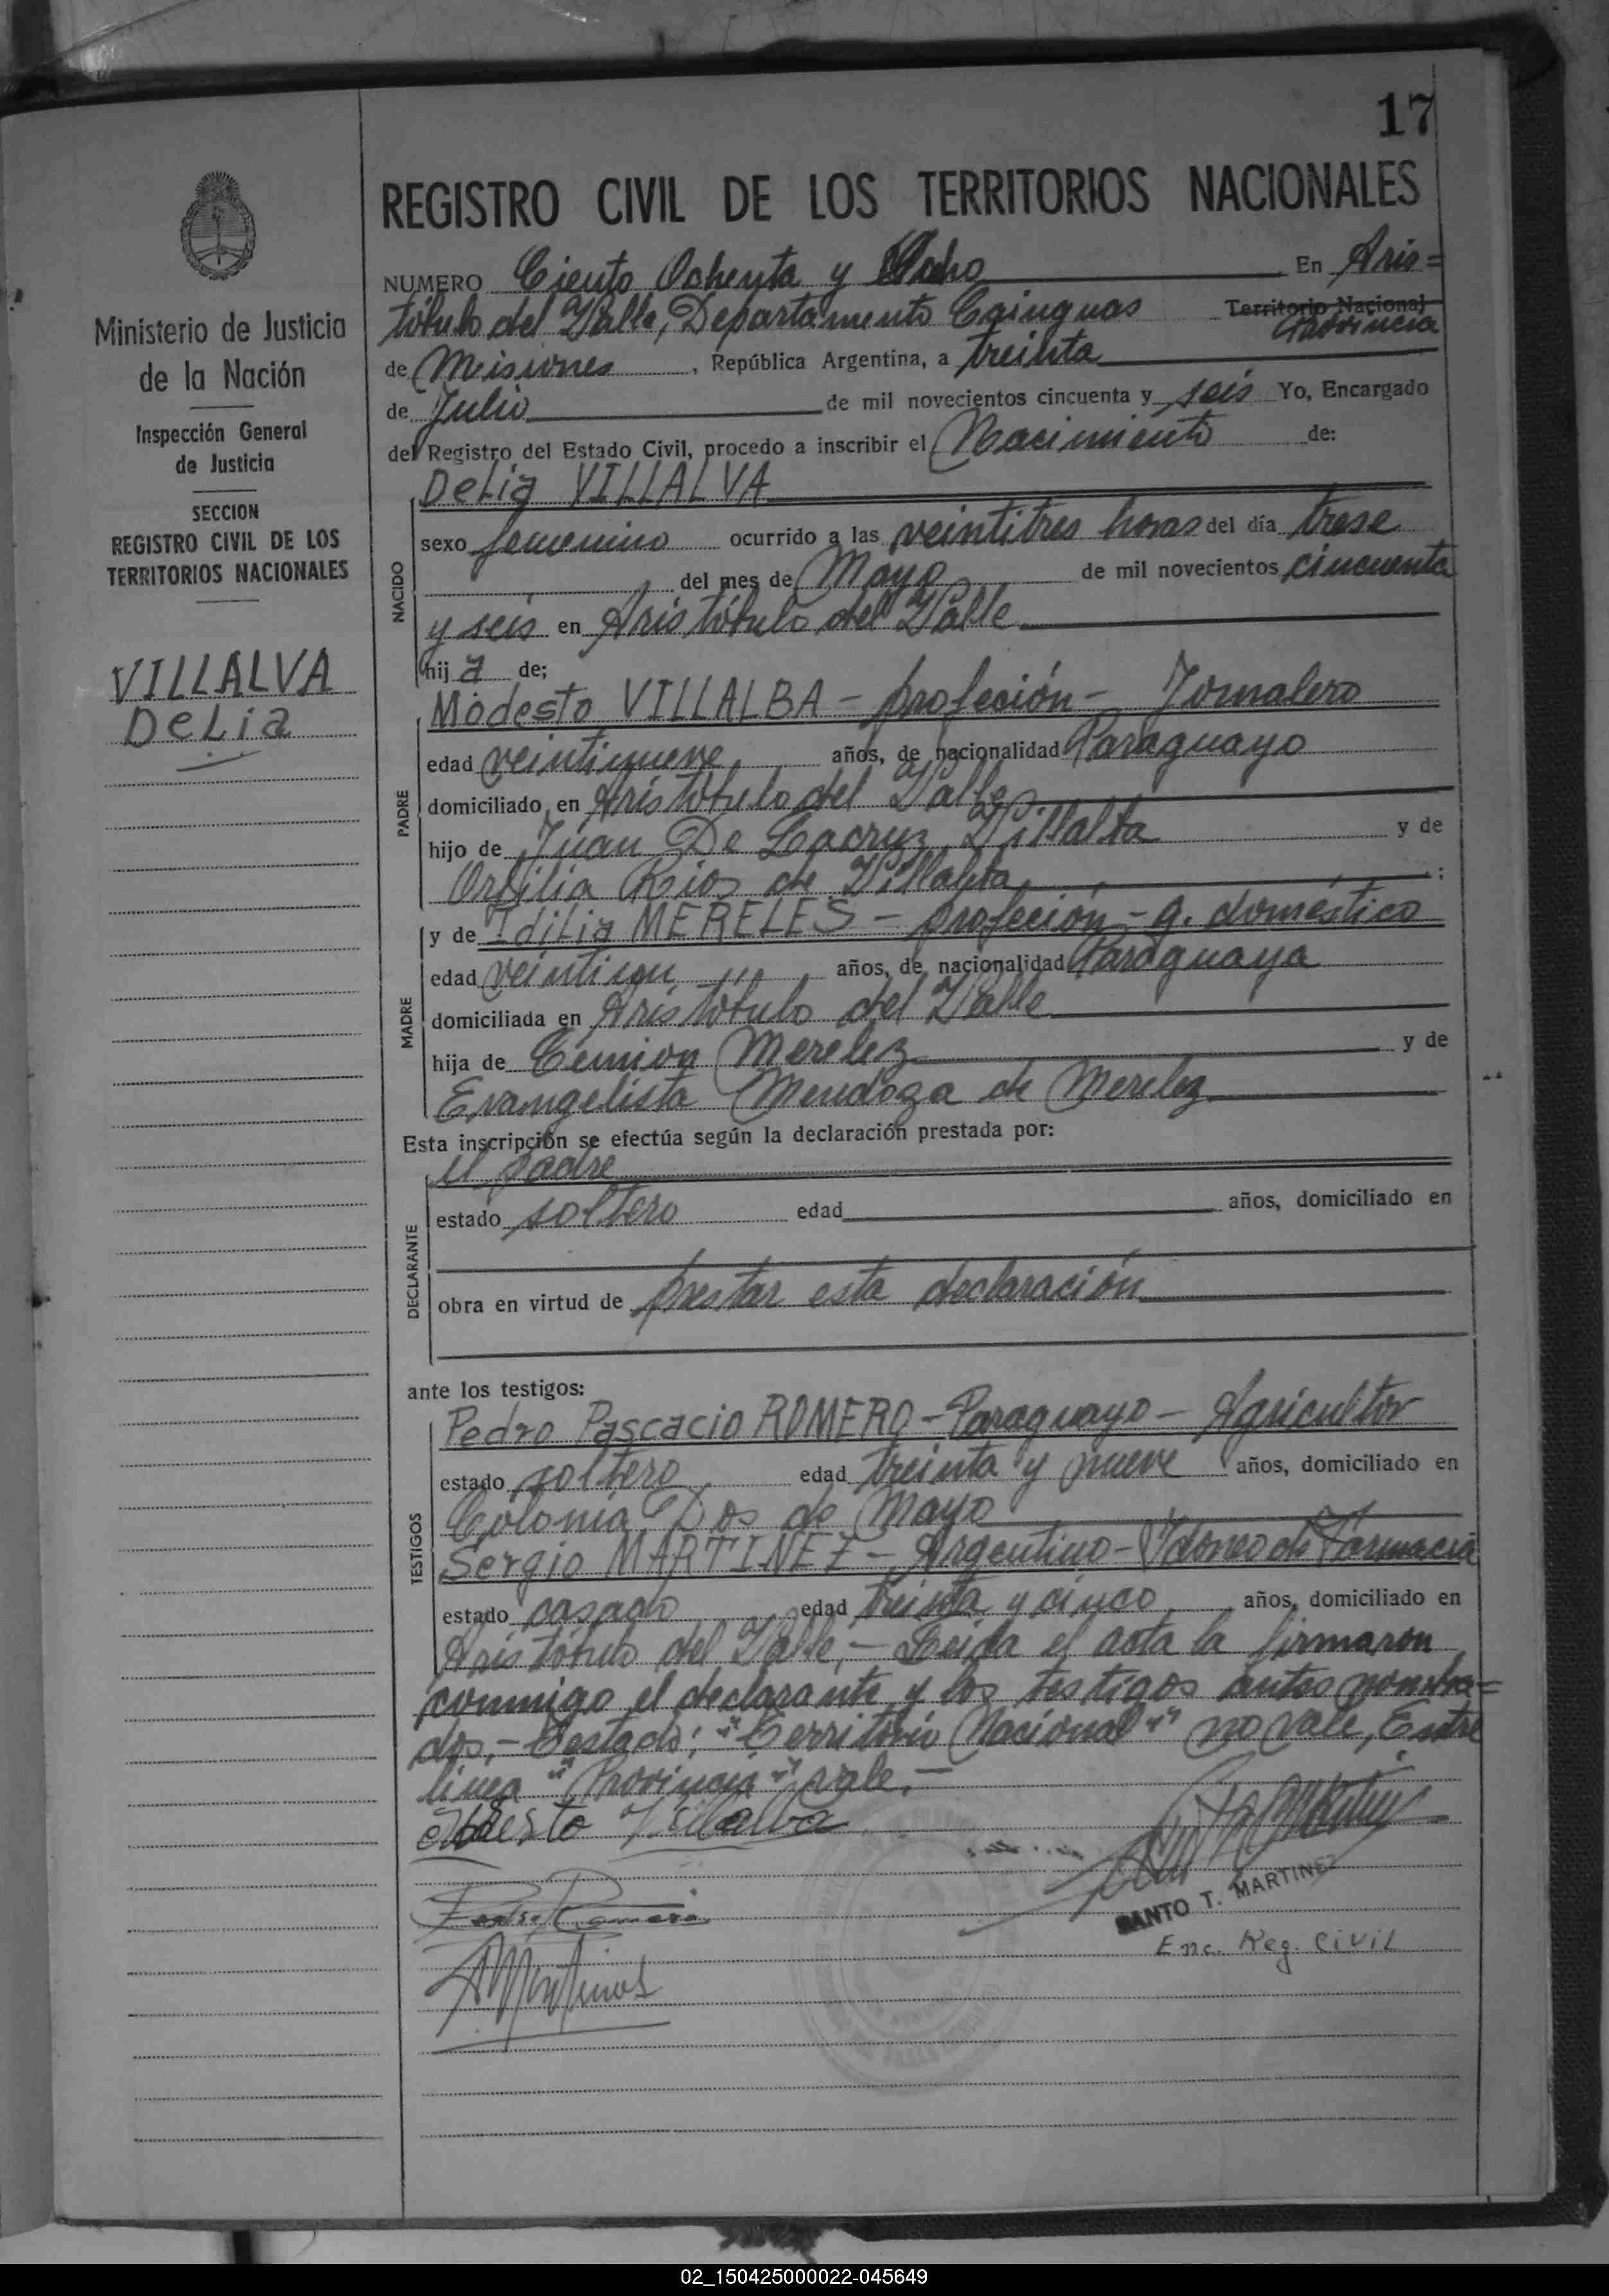 17
REGISTRO CIVIL DE LOS TERRITORIOS NACIONALES
NUMERO Ciento Ochenta y Ocho En Aris=
tóbulo del Valle, Departamento Cainguas Territorio Nacional
Provincia
de Misiones, República Argentina, a treinta
de Julio de mil novecientos cincuenta y seis Yo, Encargado
del Registro del Estado Civil, procedo a inscribir el Nacimiento de:
Ministerio de Justicia
de la Nación
Inspección General
de Justicia
SECCION
REGISTRO CIVIL DE LOS
TERRITORIOS NACIONALES
VILLALVA
Delia
NACIDO
Delia VILLALVA
sexo femenino ocurrido a las veintitres horas del día trese
del mes de Mayo de mil novecientos cincuenta
y seis en Aristóbulo del Valle
hij a de;
PADRE
Modesto VILLALBA - profeción - Jornalero
edad veintinueve años, de nacionalidad Paraguayo
domiciliado en Aristóbulo del Valle
hijo de Juan De Lacruz Villalba y de
Rios de Villalba :
MADRE
y de Idilia MERELES - profeción - q. doméstico
edad veintiun años, de nacionalidad Paraguaya
domiciliada en Aristóbulo del Valle
hija de Merelez y de
Evangelista Mendoza de Merelez
Esta inscripción se efectúa según la declaración prestada por:
DECLARANTE
el padre
estado soltero edad años, domiciliado en
obra en virtud de prestar esta declaración
ante los testigos:
TESTIGOS
Pedro Pascacio ROMERO - Paraguayo - Agricultor
estado soltero edad treinta y nueve años, domiciliado en
Colonia Dos de Mayo
Sergio MARTINEZ - Argentino - Ydoneo de Farmacia
estado casado edad treinta y cinco años, domiciliado en
Aristóbulo del Valle, - Leida el acta la firmaron
conmigo el declarante y los testigos antes nombra=
dos, - Testado: "Territorio Nacional" no vale, Entre
linea "Provincia" vale, -
Modesto Villalba
Pedro Romero
SANTO T. MARTINEZ
Enc. Reg. Civil
02_150425000022-045649